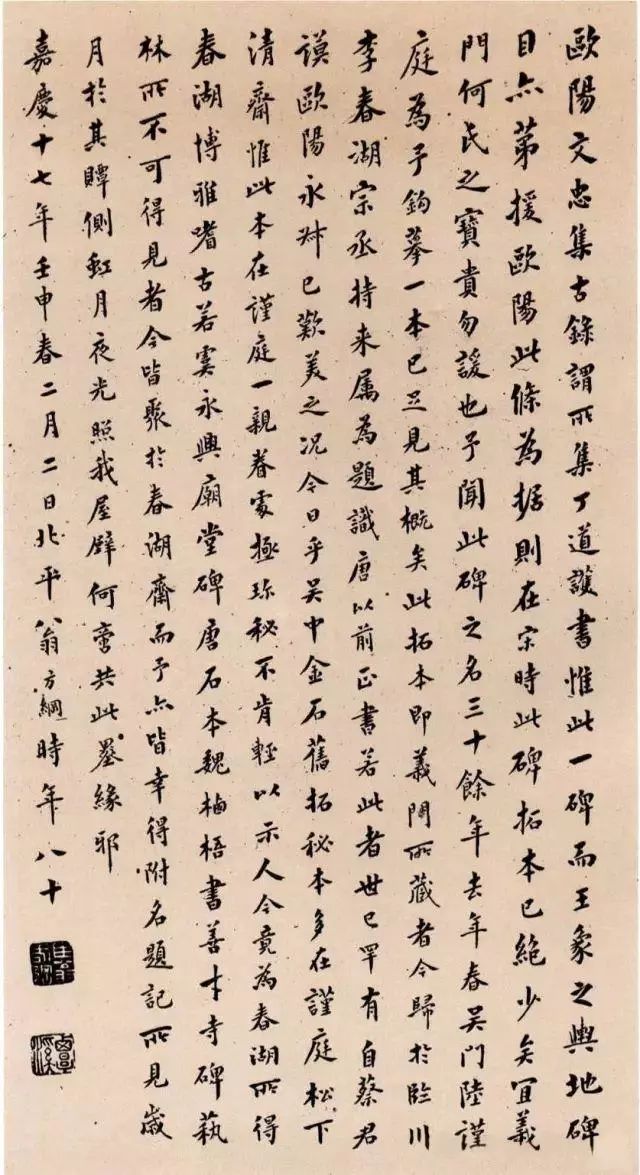 歐陽文忠集古錄謂所集丁道護書惟此一碑而王象之輿地碑
目亦第援歐陽此條為据則在宋時此碑拓本已絕少矣宜義
門何氏之寶貴勿諼也予聞此碑之名三十餘年去年春吳門陸謹
庭為予鈎摹一本已足見其概矣此拓本即義門所藏者今歸於臨川
李春湖宗丞持来屬為題識唐以前正書若此者世已罕有自蔡君
謨歐陽永叔已歎美之况今日乎吳中金石舊拓秘本多在謹庭松下
清齋惟此本在謹庭一親眷處極珎秘不肯輕以示人今竟為春湖所得
春湖博雅嗜古若虞永興廟堂碑唐石本魏栖梧書善才寺碑蓺
林所不可得見者今皆聚於春湖齋而予亦皆幸得附名題記所見歲
月於其贉側虹月夜光照我屋壁何啻共此墨緣耶
嘉慶十七年壬申春二月二日北平翁方綱時年八十